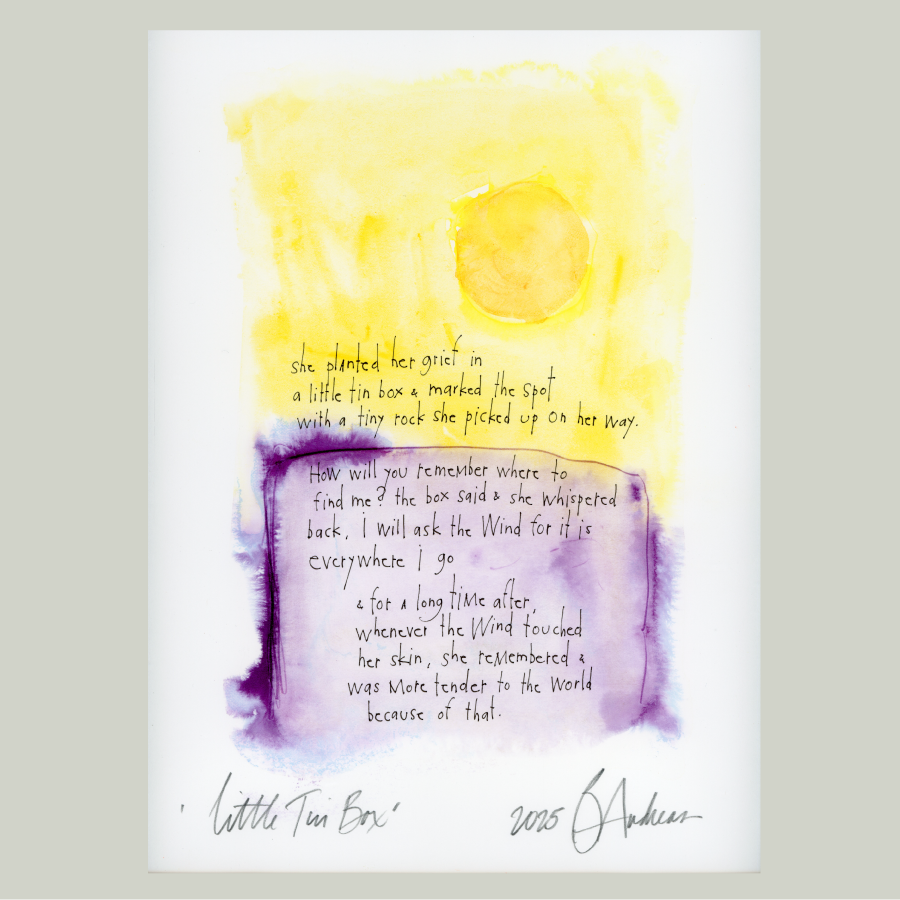 she planted her grief in
a little tin box & marked the spot
with a tiny rock she picked up on her way.
How will you remember where to
find me? the box said & she whispered
back, i will ask the Wind for it is
everywhere i go
& for a long time after,
whenever the Wind touched
her skin, she remembered &
was more tender to the World
because of that.
'Little Tin Box' 2025 B Andreas